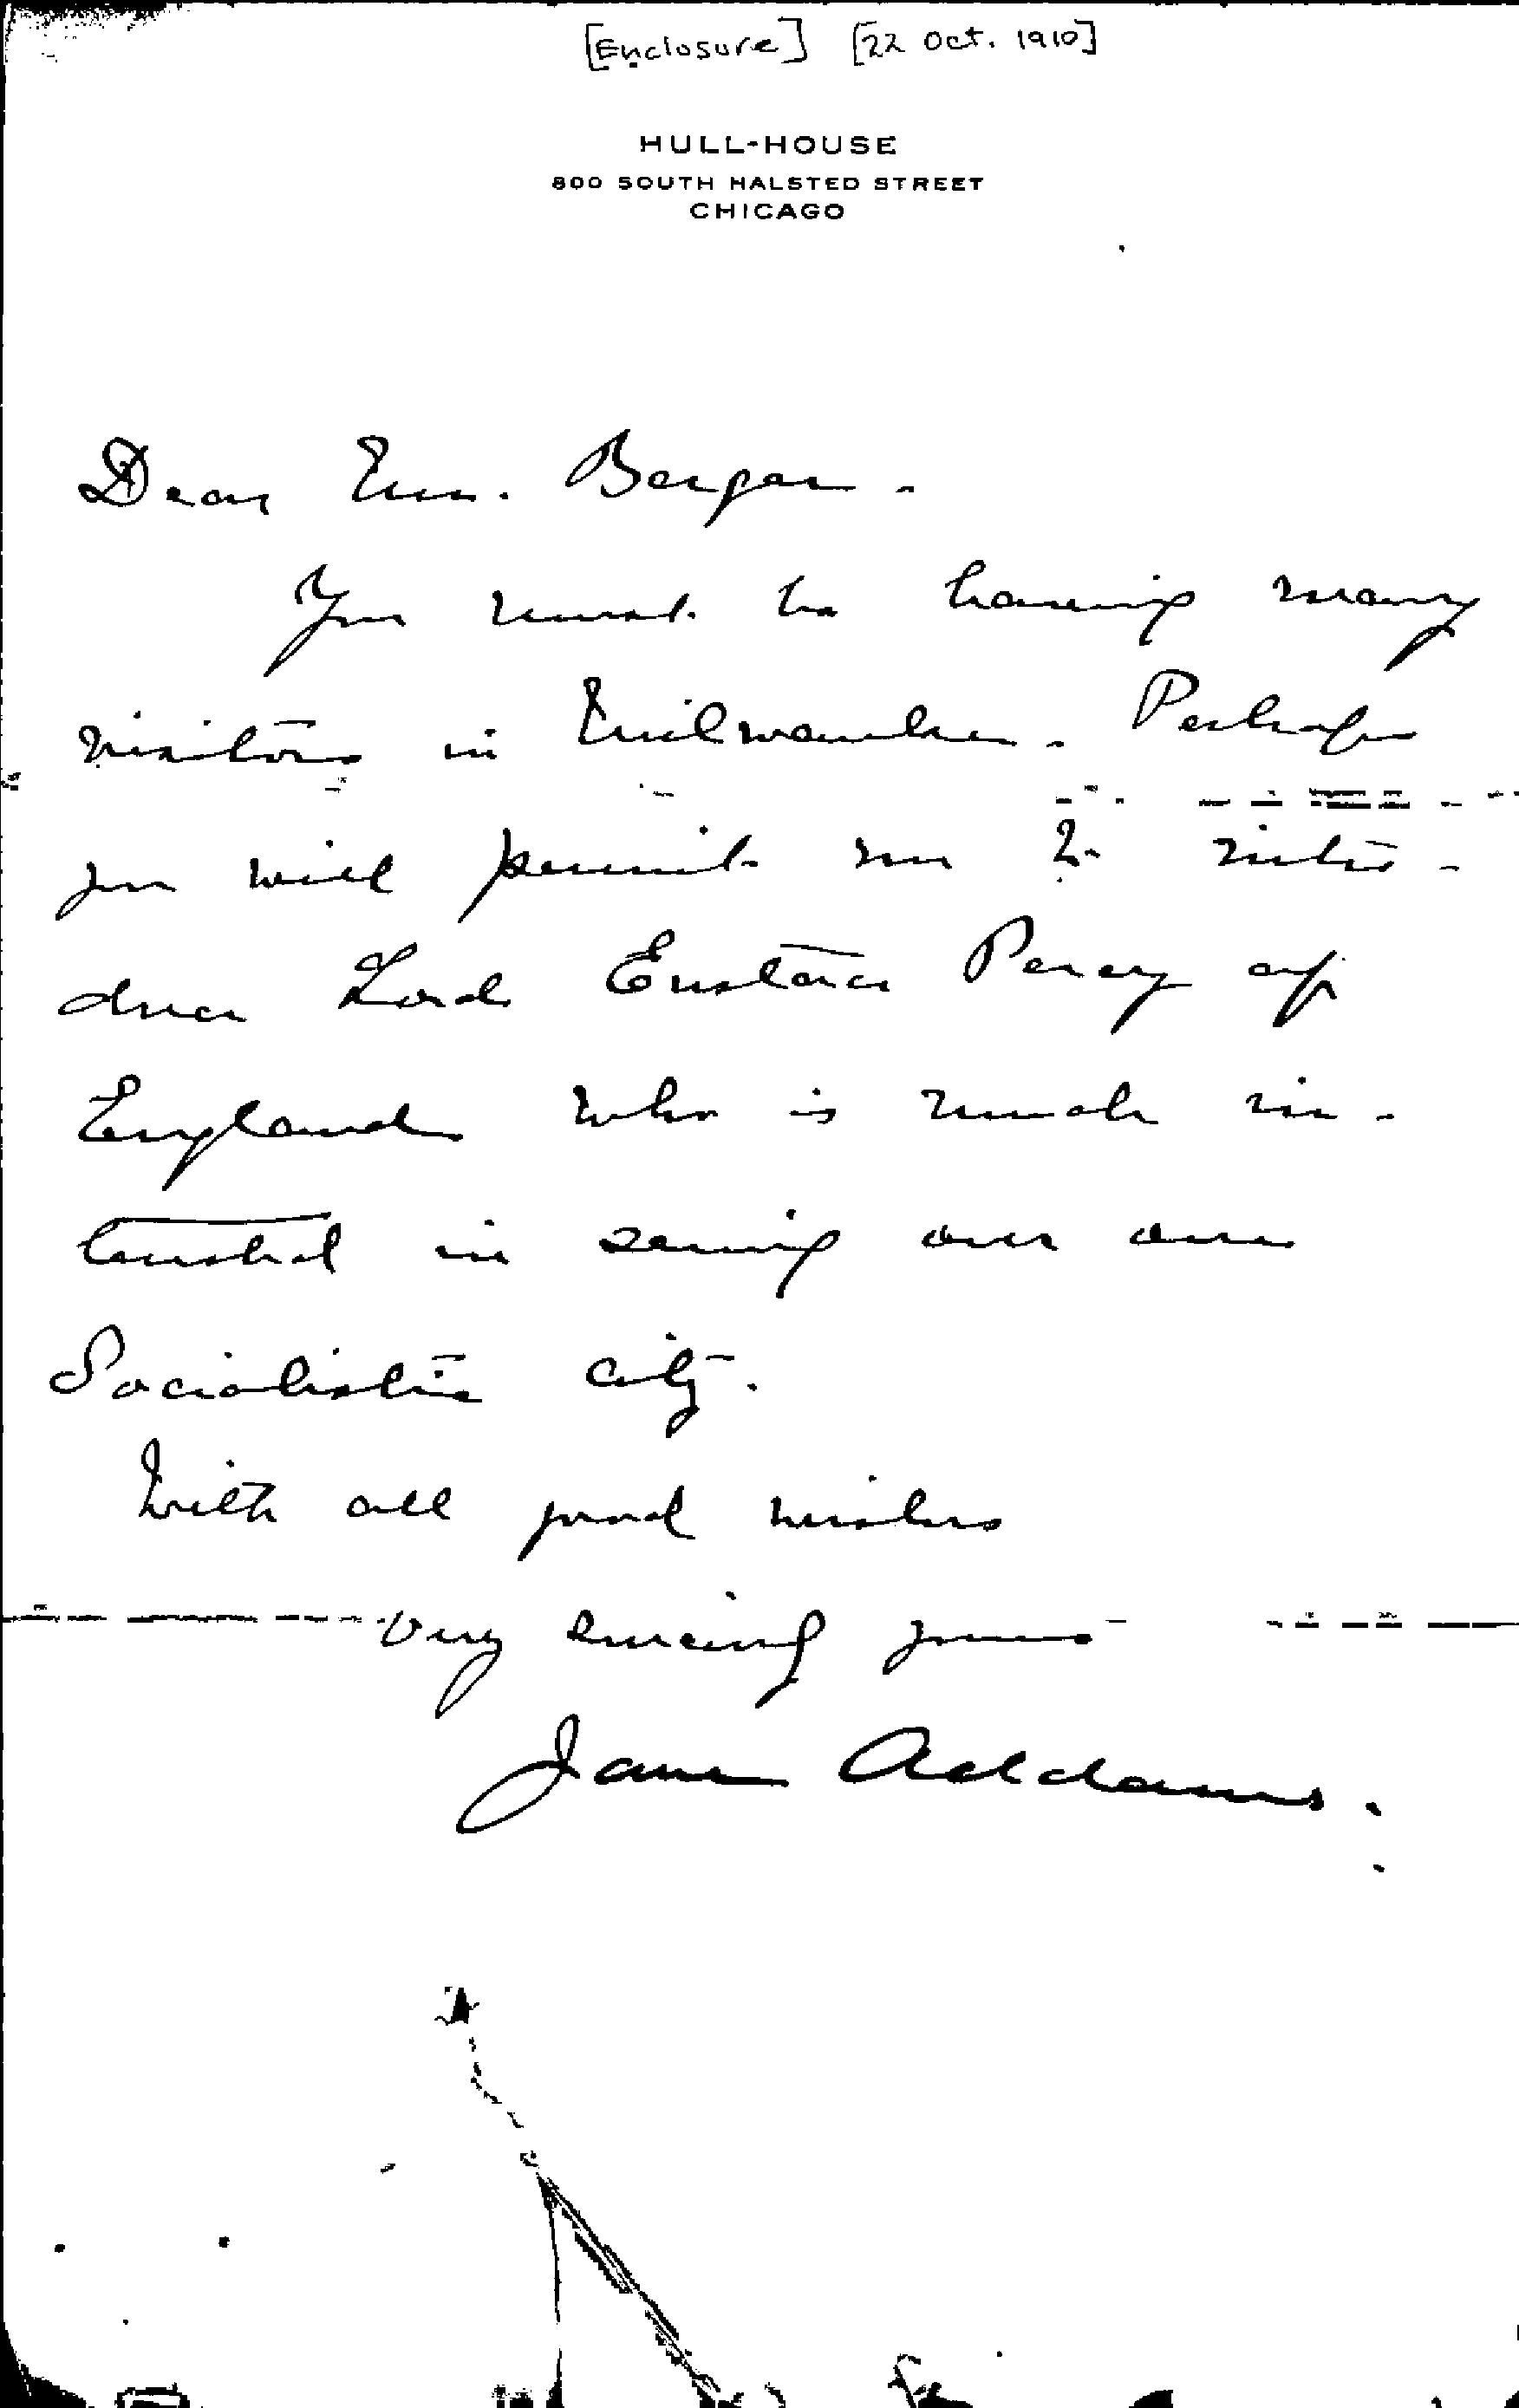 [Enclosure] [22 Oct. 1910]
HULL-HOUSE
800 SOUTH HALSTED STREET
CHICAGO
Dear Mr. Berger -
You must be having many
visitors in Milwaukee. Perhaps
you will permit me to intro-
duce Lord Eustace Percy of
England who is much in-
terested in seeing over our
Socialistic city.
With all good wishes
very sincerely yours
Jane Addams.